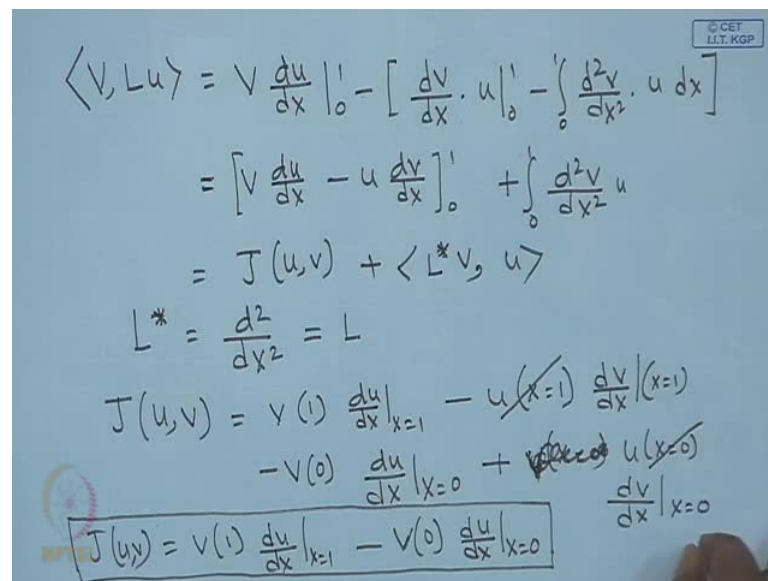 © CET
I.I.T. KGP
⟨V, Lu⟩ = V du/dx |₀¹ − [ dv/dx · u |₀¹ − ∫₀¹ d²v/dx² · u dx ]
= [ V du/dx − u dv/dx ]₀¹ + ∫₀¹ d²v/dx² u
= J(u,v) + ⟨L*v, u⟩
L* = d²/dx² = L
J(u,v) = v(1) du/dx |ₓ₌₁ − u(x=1) dv/dx |(x=1)
− V(0) du/dx |ₓ₌₀ + u(x=0)
dv/dx |ₓ₌₀
J(u,v) = V(1) du/dx |ₓ₌₁ − V(0) du/dx |ₓ₌₀
NPTEL